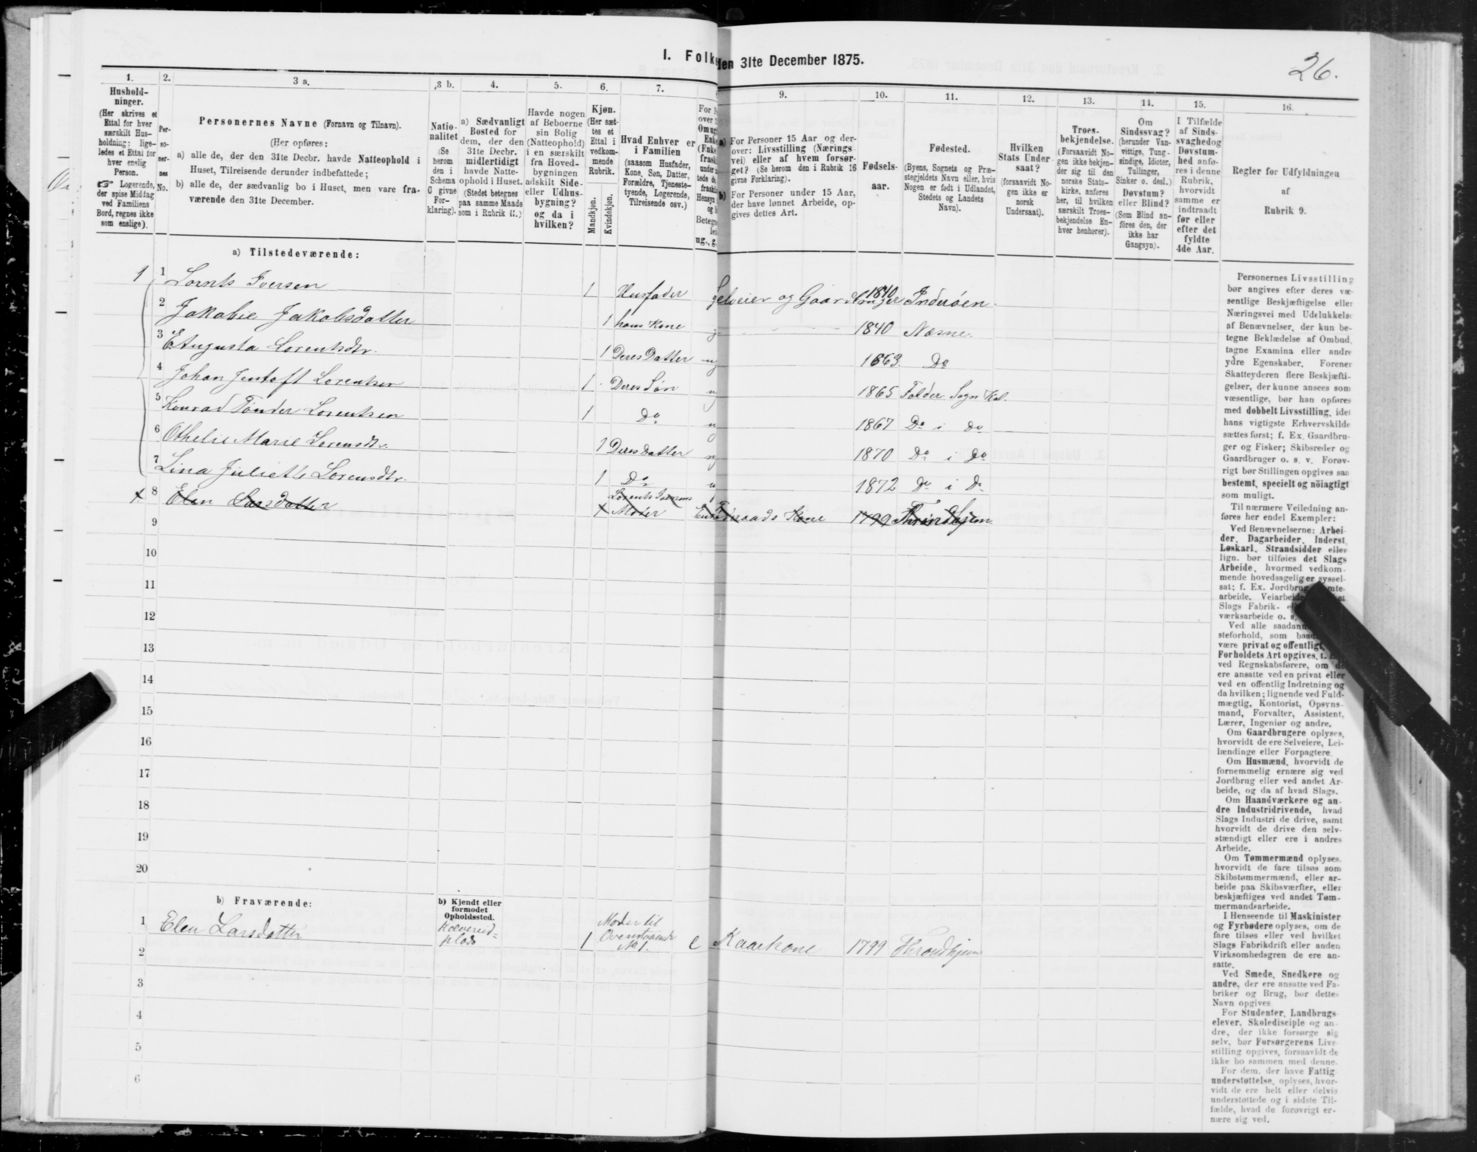 I. Folk
den 31te December 1875.
26.
1.
Hushold-
ninger.
(Her skrives et
Ettal for hver
særskilt Hus-
holdning; lige-
ledes et Ettal for
hver enslig
Person.
☞ Logerende,
der spise Middag
ved Familiens
Bord, regnes ikke
som enslige).
2.
Per-
so-
ner-
nes
No.
3 a.
Personernes Navne (Fornavn og Tilnavn).
(Her opføres:
a) alle de, der den 31te Decbr. havde Natteophold i
Huset, Tilreisende derunder indbefattede;
b) alle de, der sædvanlig bo i Huset, men vare fra-
værende den 31te December.
3 b.
Natio-
nalitet
(Se
herom
den i
Schema
C givne
For-
klaring).
4.
a) Sædvanligt
Bosted for
dem, der den
31te Decbr.
midlertidigt
havde Natte-
ophold i Huset.
(Stedet betegnes
paa samme Maade
som i Rubrik 11.)
5.
Havde nogen
af Beboerne
sin Bolig
(Natteophold)
i en særskilt
fra Hoved-
bygningen
adskilt Side-
eller Udhus-
bygning?
og da i
hvilken?
6.
Kjøn.
(Her sæt-
tes et
Ettal i
vedkom-
mende
Rubrik.
Mandkjøn.
Kvindekjøn.
7.
Hvad Enhver er
i Familien
(saasom Husfader,
Kone, Søn, Datter,
Forældre, Tjeneste-
tyende, Logerende,
Tilreisende osv.)
9.
a) For Personer 15 Aar og der-
over: Livsstilling (Nærings-
vei) eller af hvem forsør-
get? (Se herom den i Rubrik 16
givne Forklaring).
b) For Personer under 15 Aar,
der have lønnet Arbeide, op-
gives dettes Art.
10.
Fødsels-
aar.
11.
Fødested.
(Byens, Sognets og Præ-
stegjeldets Navn eller, hvis
Nogen er født i Udlandet,
Stedets og Landets
Navn).
12.
Hvilken
Stats Under-
saat?
(forsaavidt No-
gen ikke er
norsk
Undersaat).
13.
Troes-
bekjendelse.
(Forsaavidt No-
gen ikke bekjen-
der sig til den
norske Stats-
kirke, anføres
her, til hvilken
særskilt Troes-
bekjendelse En-
hver henhorer).
14.
Om
Sindssvag?
(herunder Van-
vittige, Tung-
sindige, Idioter,
Tullinger,
Sinker o. desl.)
Døvstum?
eller Blind?
(Som Blind an-
føres den, der
ikke har
Gangsyn).
15.
I Tilfælde
af Sinds-
svaghedog
Døvstum-
hed anfø-
res i denne
Rubrik,
hvorvidt
samme er
indtraadt
før eller
efter det
fyldte
4de Aar.
16.
Regler for Udfyldningen
af
Rubrik 9.
a) Tilstedeværende:
1 1 Lornts Iversen 1 Husfader Selveier og Gaardbruger 1840 Inderøen
2 Jakobie Jakobsdatter 1 hans Kone 1840 Næsne.
3 Augusta Lorentsdtr. 1 Deres Datter 1863 Do
4 Johan Jentoft Lorentsen 1 Deres Søn 1865 Folder Sogn
5 Konrad Tønder Lorentsen 1 Do 1867 Do i do
6 Othelie Marie Lorensdtr. 1 Deres datter 1870 Do i do
7 Lina Juliette Lorensdtr. 1 Do 1872 Do i do
x 8 Elen Larsdatter Lorents Iversens Moder Kone 1799 Throndhjem
9
10
11
12
13
14
15
16
17
18
19
20
b) Fraværende:
b) Kjendt eller
formodet
Opholdssted.
1 Elen Larsdatter 1 Moder til Ovenstaaende No 1. e Kaarkone 1799 Throndhjem
2
3
4
5
6
Personernes Livsstilling
bør angives efter deres væ-
sentlige Beskjæftigelse eller
Næringsvei med Udelukkelse
af Benævnelser, der kun be-
tegne Beklædelse af Ombud,
tagne Examina eller andre
ydre Egenskaber. Forener
Skatteyderen flere Beskjæfti-
gelser, der kunne ansees som
væsentlige, bør han opføres
med dobbelt Livsstilling, idet
hans vigtigste Erhvervskilde
sættes først; f. Ex. Gaardbru-
ger og Fisker; Skibsreder og
Gaardbruger o. s. v. Forøv-
rigt bør Stillingen opgives saa
bestemt, specielt og nøiagtigt
som muligt.
Til nærmere Veiledning an-
føres her endel Exempler:
Ved Benævnelserne: Arbei-
der, Dagarbeider, Inderst,
Løskarl, Strandsidder eller
lign. bør tilføies det Slags
Arbeide, hvormed vedkom-
mende hovedsagelig er syssel-
sat; f. Ex.
arbeide, Veiarbeide,
Slags Fabrik-
værksarbeide o. s.
Ved alle
steforhold, som
være privat og offentligt,
Forholdets Art opgives, t.
ved Regnskabsførere, om de
ere ansatte ved en privat eller
ved en offentlig Indretning og
da hvilken; lignende ved Fuld-
mægtig, Kontorist, Opsyns-
mand, Forvalter, Assistent,
Lærer, Ingeniør og andre.
Om Gaardbrugere oplyses,
hvorvidt de ere Selveiere, Lei-
lændinge eller Forpagtere.
Om Husmænd, hvorvidt de
fornemmelig ernære sig ved
Jordbrug eller ved andet Ar-
beide, og da af hvad Slags.
Om Haandværkere og an-
dre Industridrivende, hvad
Slags Industri de drive, samt
hvorvidt de drive den selv-
stændigt eller ere i andres
Arbeide.
Om Tømmermænd oplyses,
hvorvidt de fare tilsøs som
Skibstømmermænd, eller ar-
beide paa Skibsværfter, eller
beskjæftiges ved andet Tøm-
mermandsarbeide.
I Henseende til Maskinister
og Fyrbødere oplyses, om de
fare tilsøs eller ved hvilket
Slags Fabrikdrift eller anden
Virksomhedsgren de ere an-
satte.
Ved Smede, Snedkere og
andre, der ere ansatte ved Fa-
briker og Brug, bør dettes
Navn opgives.
For Studenter, Landbrugs-
elever, Skoledisciple og an-
dre, der ikke forsørge sig
selv, bør Forsørgerens Livs-
stilling opgives, forsaavidt de
ikke bo sammen med denne.
For dem, der have Fattig-
understøttelse, oplyses, hvor-
vidt de ere helt eller delvis
understøttede og i sidste Til-
fælde, hvad de forøvrigt er-
nære sig ved.